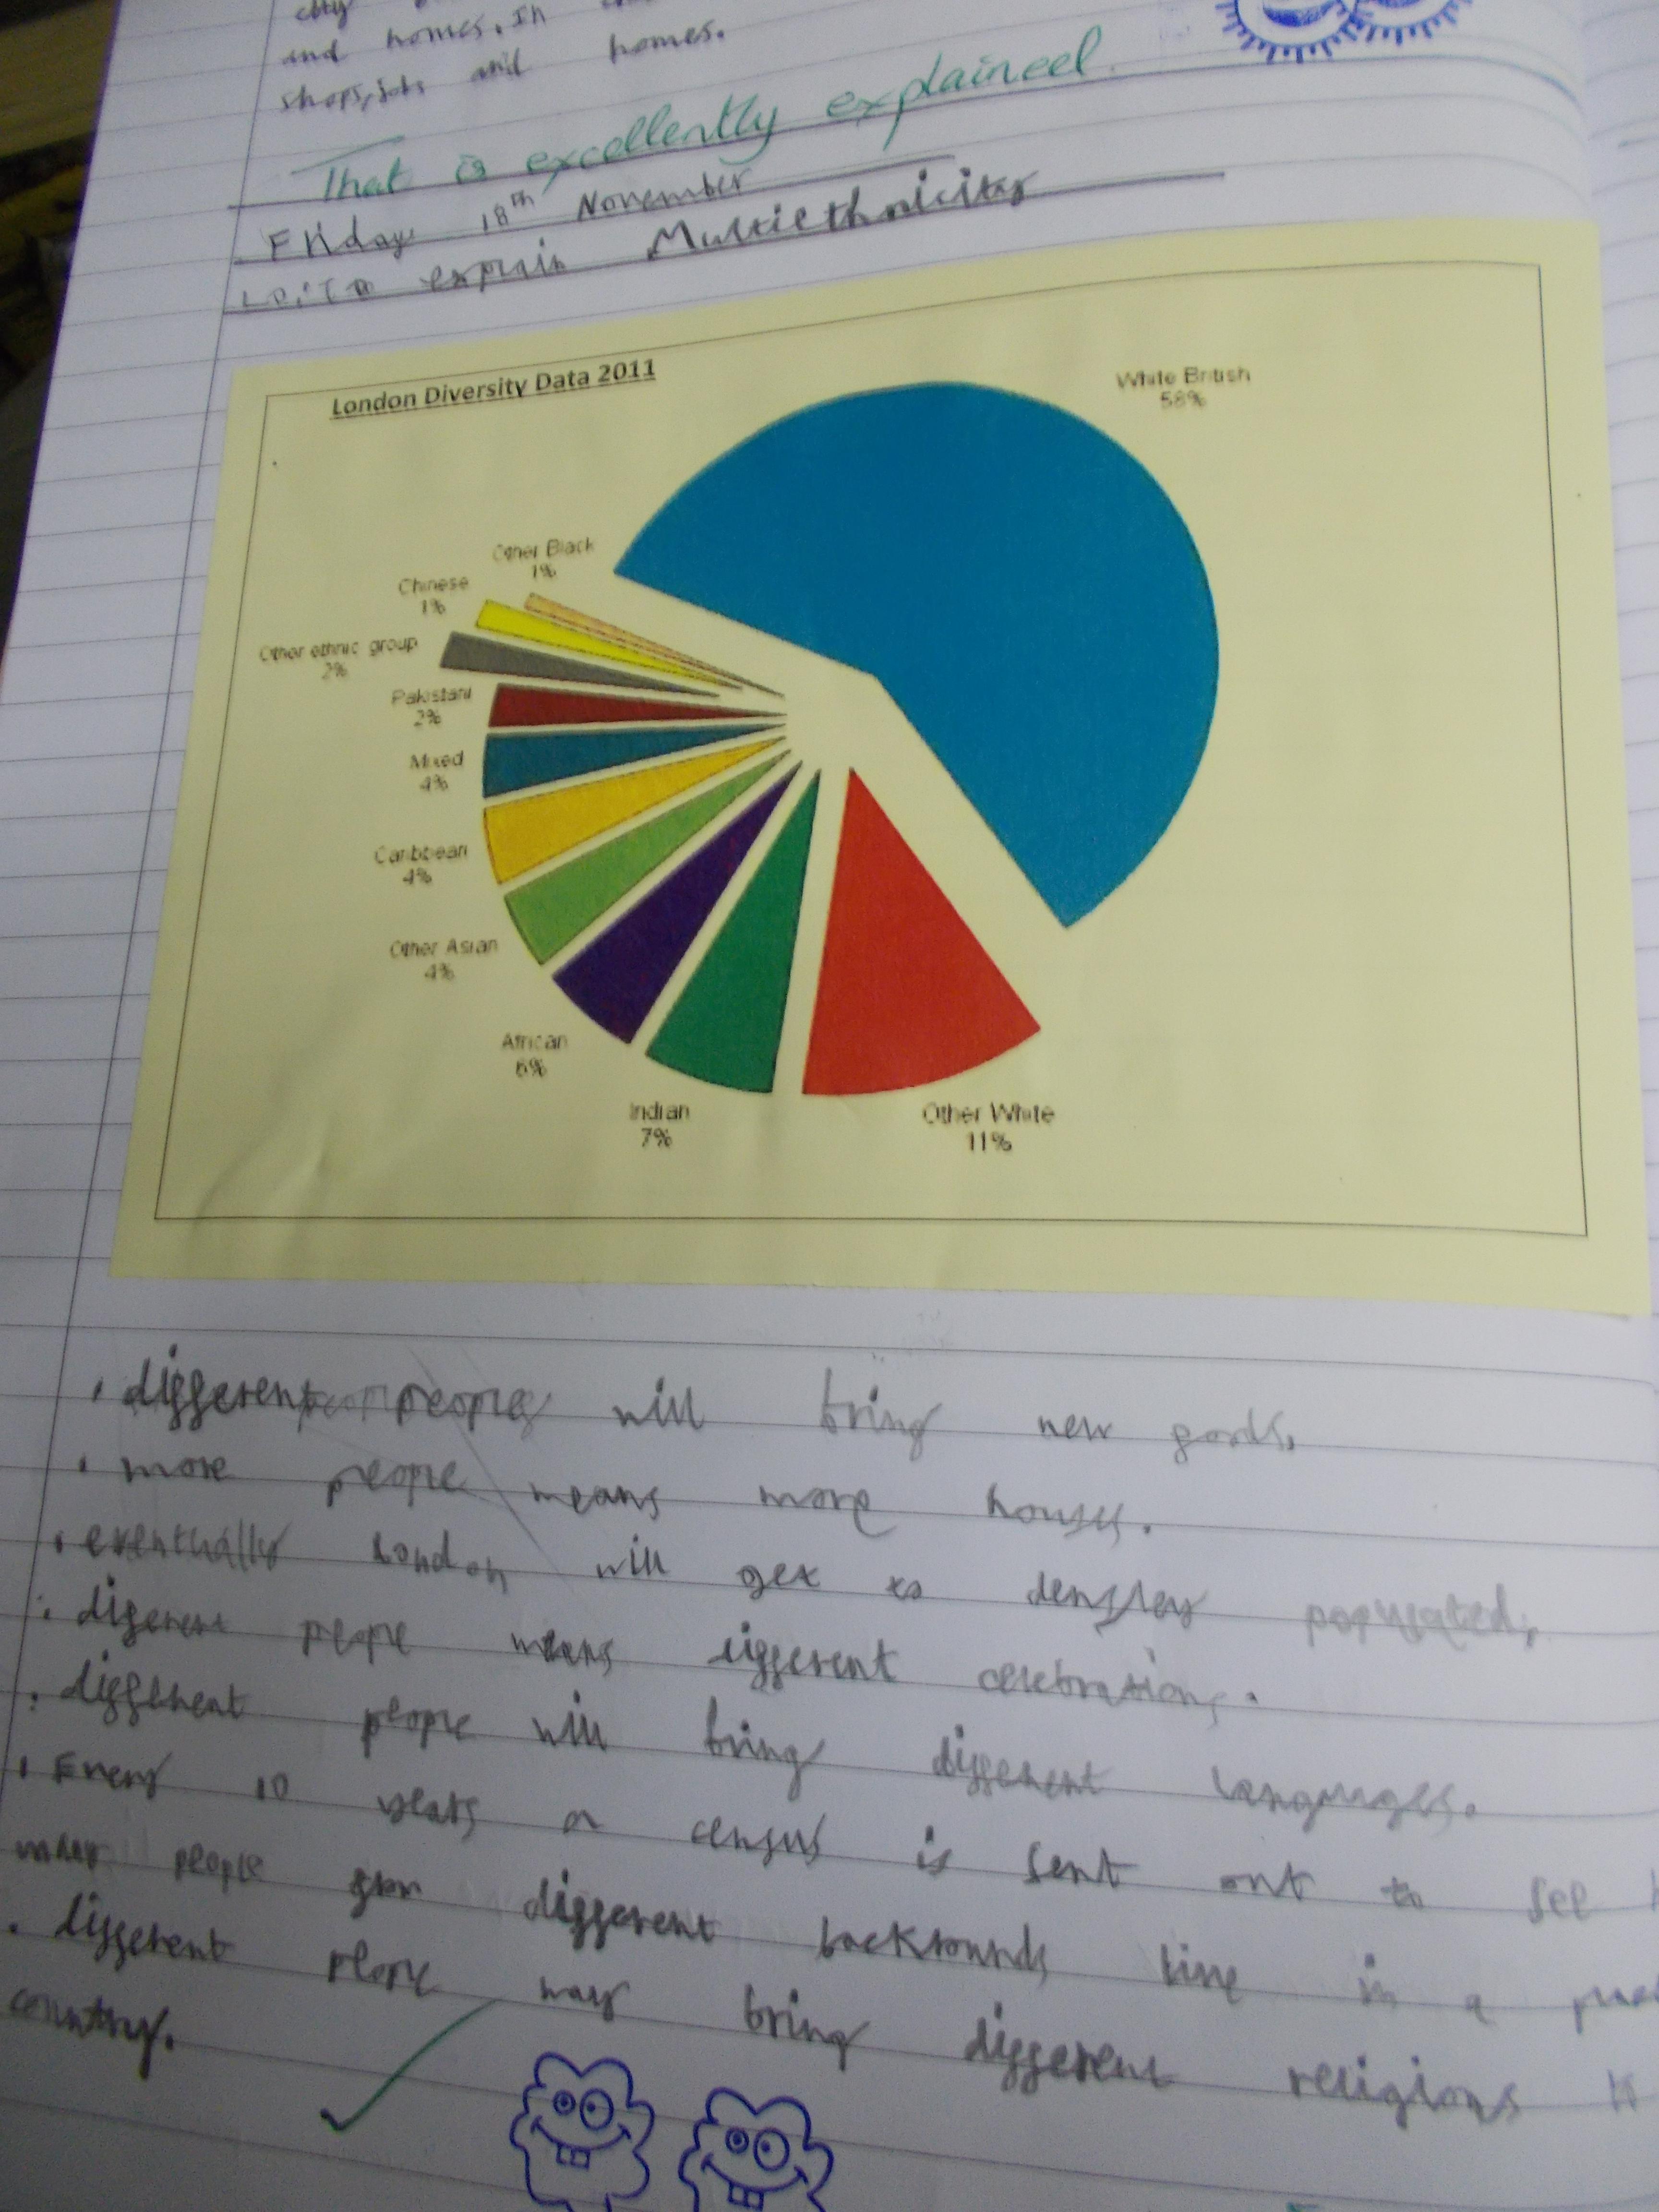 city
and homes. In
shops, jobs and homes.
That is excellently explained.
Friday 18th November
Lo: To explain Multiethnicity
London Diversity Data 2011
White British
58%
Other Black
1%
Chinese
1%
Other ethnic group
2%
Pakistani
2%
Mixed
4%
Caribbean
4%
Other Asian
4%
African
6%
Indian
7%
Other White
11%
• different people will bring new goods.
• more people means more houses.
• eventually London will get to densley populated.
• diferent people means different celebrations.
• different people will bring different languages.
• Every 10 years a census is sent out to see
many people from different backrounds live in a
• different people may bring different religions
country.